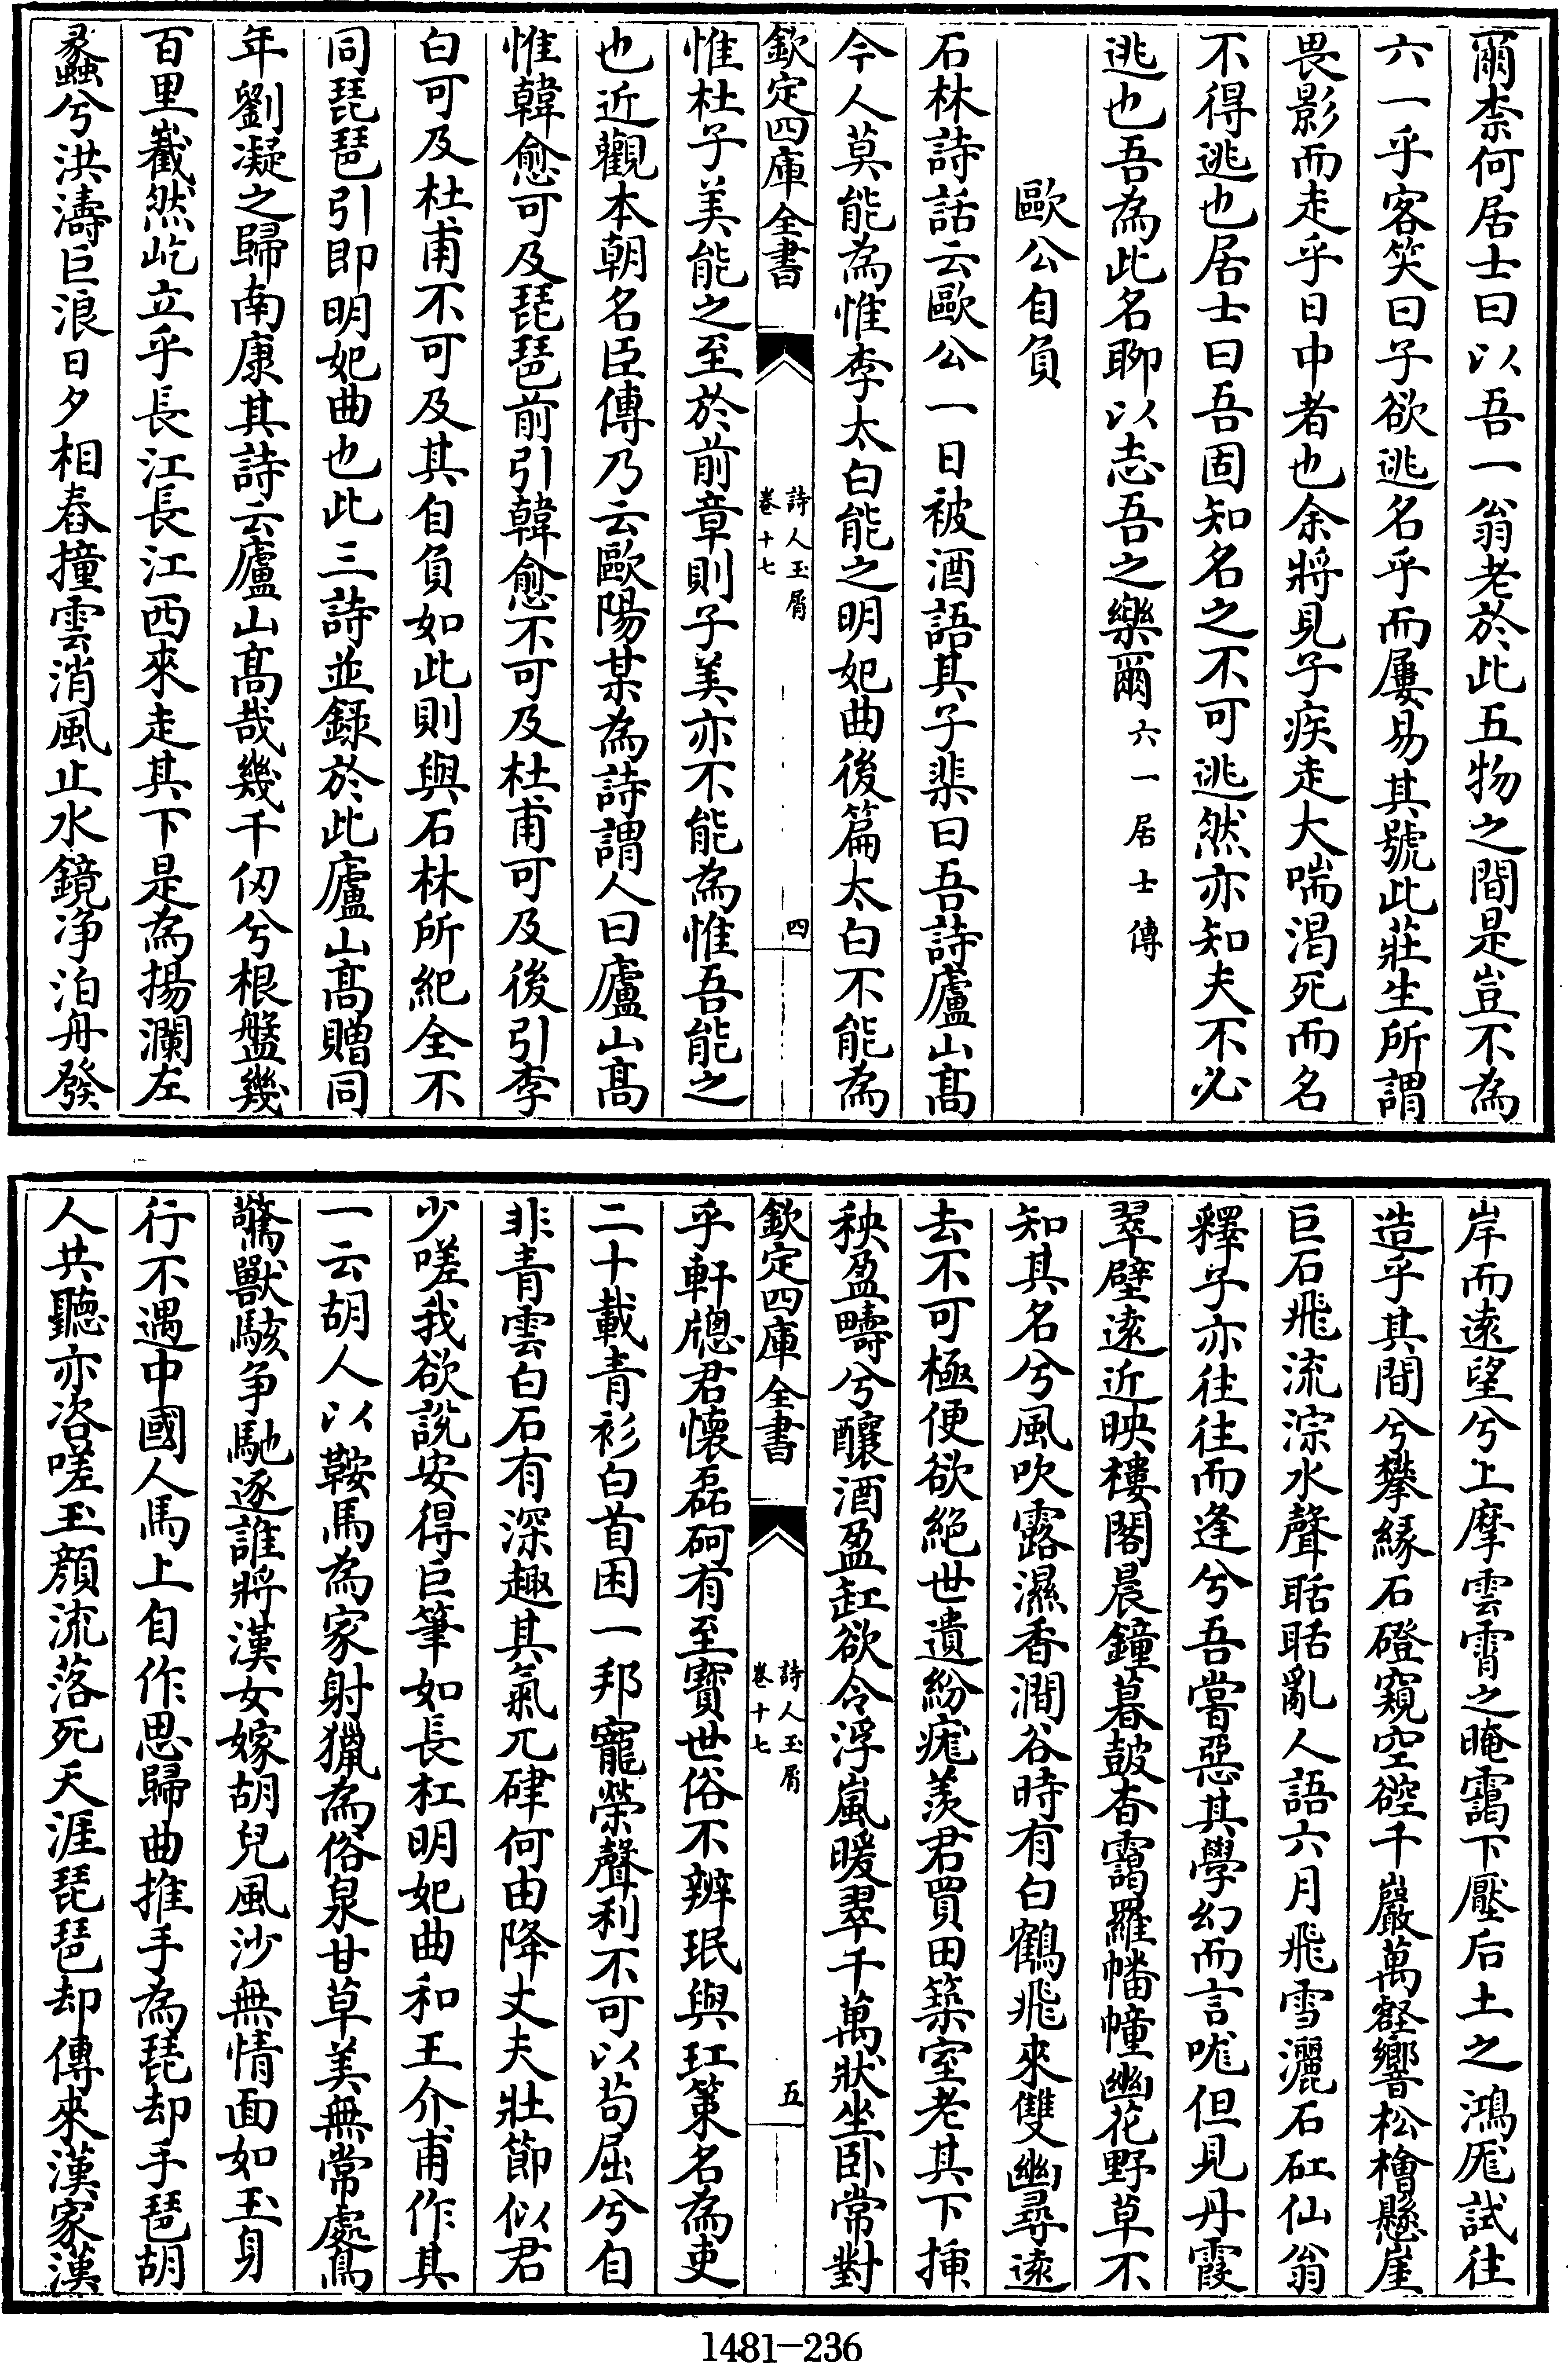 爾柰何居士曰以吾一翁老於此五物之間是豈不為
六一乎客笑曰子欲逃名乎而屢易其號此莊生所謂
畏影而走乎日中者也余將見子疾走大喘渴死而名
不得逃也居士曰吾固知名之不可逃然亦知夫不必
逃也吾為此名聊以志吾之樂爾六一居士傳
歐公自負
石林詩話云歐公一日被酒語其子棐曰吾詩廬山髙
今人莫能為惟李太白能之明妃曲後篇太白不能為
欽定四庫全書
詩人玉屑
卷十七
四
惟杜子美能之至於前章則子美亦不能為惟吾能之
也近觀本朝名臣傳乃云歐陽某為詩謂人曰廬山髙
惟韓愈可及琵琶前引韓愈不可及杜甫可及後引李
白可及杜甫不可及其自負如此則與石林所紀全不
同琵琶引即明妃曲也此三詩並録於此廬山髙贈同
年劉凝之歸南康其詩云廬山髙哉幾千仞兮根盤幾
百里巀然屹立乎長江長江西來走其下是為揚瀾左
蠡兮洪濤巨浪日夕相舂撞雲消風止水鏡净泊舟發
岸而逺望兮上摩雲霄之晻靄下壓后土之鴻厖試往
造乎其間兮攀縁石磴窺空硿千巖萬壑響松檜懸崖
巨石飛流淙水聲聒聒亂人語六月飛雪灑石矼仙翁
釋子亦往往而逢兮吾嘗惡其學幻而言哤但見丹霞
翠壁逺近映樓閣晨鐘暮鼓杳靄羅幡幢幽花野草不
知其名兮風吹露濕香澗谷時有白鶴飛來雙幽尋逺
去不可極便欲絶世遺紛痝羡君買田築室老其下揷
秧盈疇兮釀酒盈缸欲令浮嵐暖翠千萬狀坐卧常對
欽定四庫全書
詩人玉屑
卷十七
五
乎軒牕君懐磊砢有至寳世俗不辨珉與玒策名為吏
二十載青衫白首困一邦寵榮聲利不可以苟屈兮自
非青雲白石有深趣其氣兀硉何由降丈夫壯節似君
少嗟我欲説安得巨筆如長杠明妃曲和王介甫作其
一云胡人以鞍馬為家射獵為俗泉甘草美無常處鳥
驚獸駭争馳逐誰將漢女嫁胡兒風沙無情面如玉身
行不遇中國人馬上自作思歸曲推手為琵却手琶胡
人共聽亦咨嗟玉顔流落死天涯琵琶却傳來漢家漢
1481-236